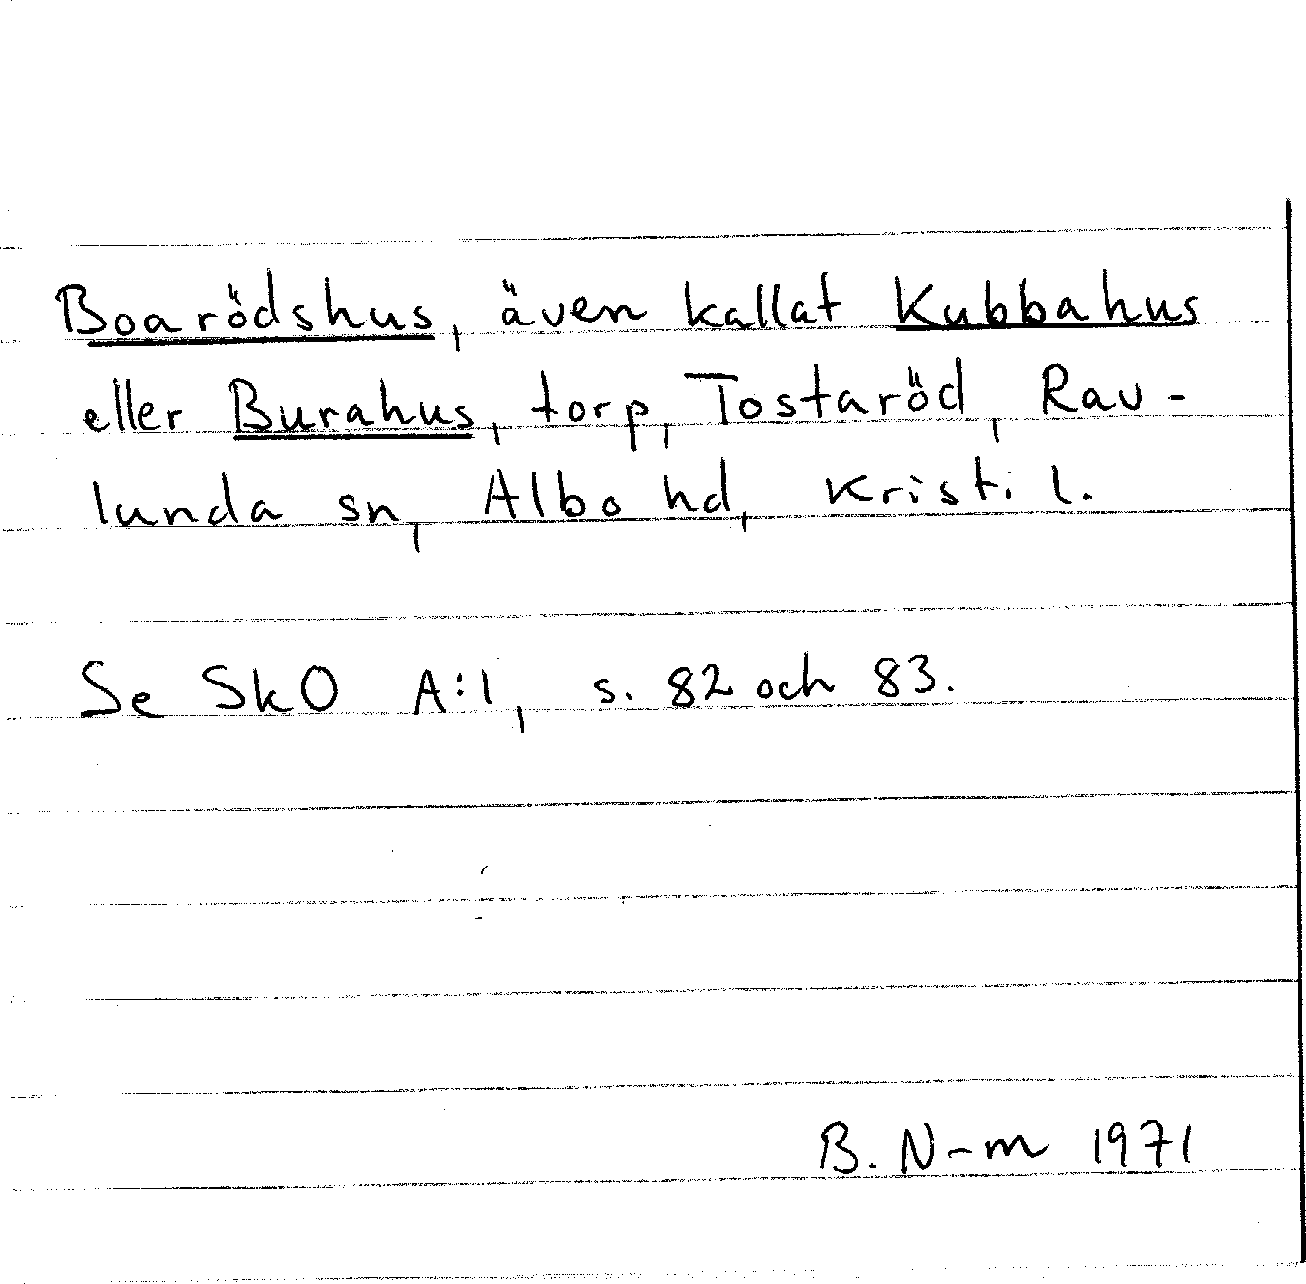 Boarödshus, även kallat Kubbahus
eller Burahus, torp, Tostaröd, Rav-
lunda sn, Albo hd, Krist. l.
Se SkO A:1, s. 82 och 83.
B. N-m 1971